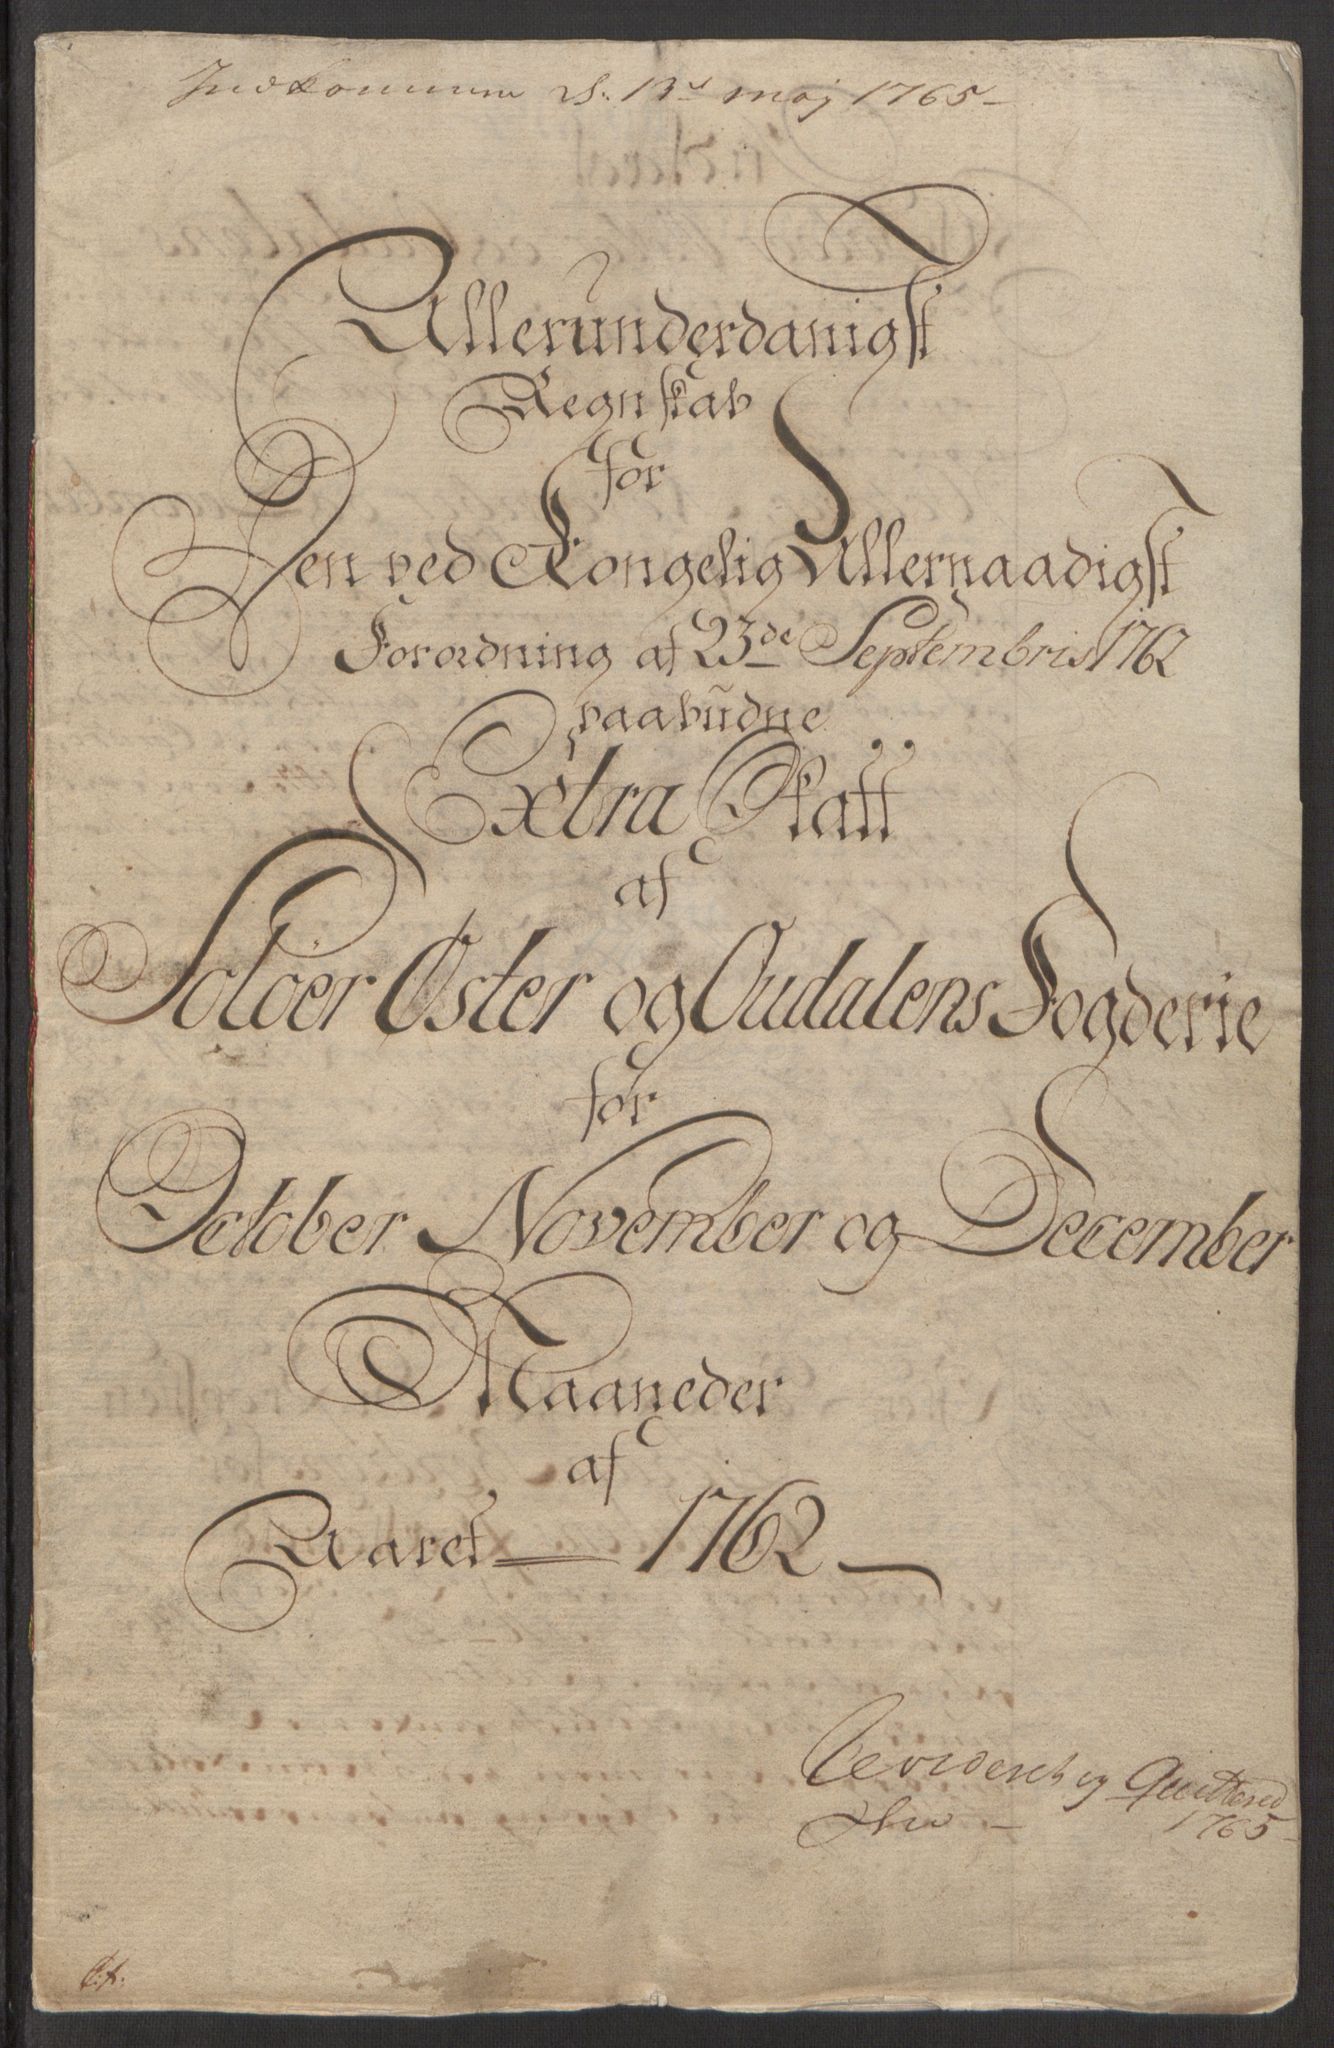 Indkommen d. 13d maj 1765
Allerunderdanigst
Regnskab
for
Den ved Kongelig Allernaadigst
Forordning af 23de Septembris 1762
paabudne
Extra Skatt
af
Soløer Øster og Oudalens Fogderie
for
October November og December
Maaneder
af
Aaret 1762
Revideret og Quitteret
1765